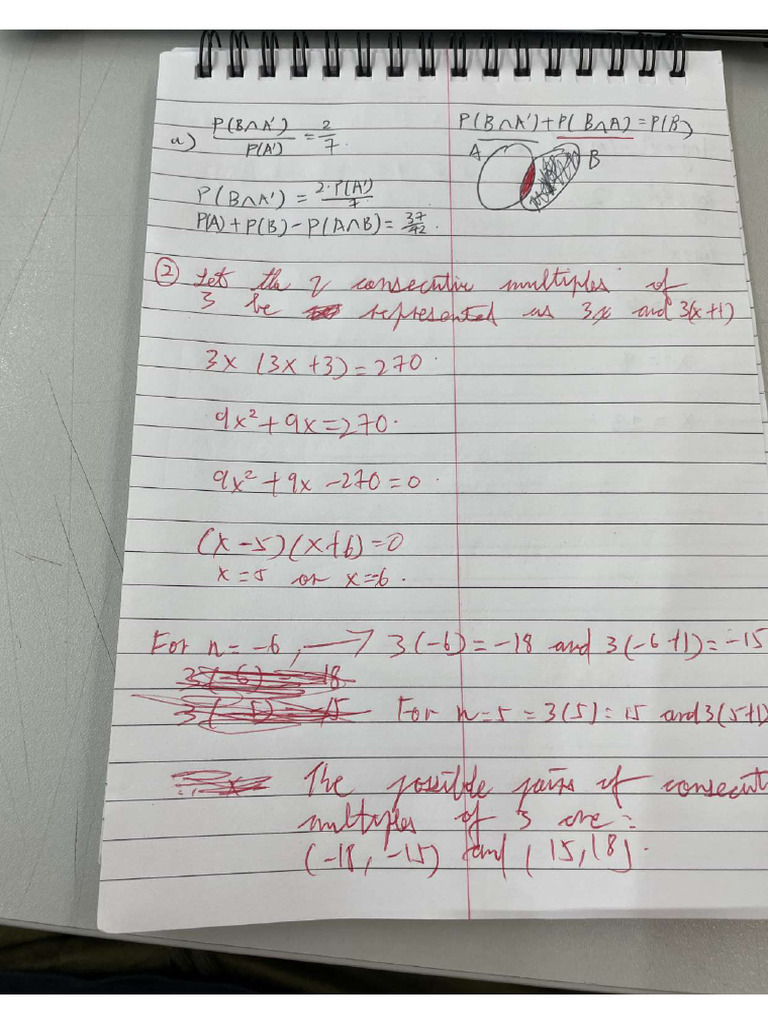 a) P(B∩A')/P(A') = 2/7.
P(B∩A') + P(B∩A) = P(B)
A B
P(B∩A') = 2·P(A')/7
P(A) + P(B) - P(A∩B) = 37/42.
② Let the 2 consecutive multiples of
3 be represented as 3x and 3(x+1)
3x (3x+3) = 270.
9x² + 9x = 270.
9x² + 9x - 270 = 0.
(x-5)(x+6) = 0
x = 5 or x = 6.
For n = -6, → 3(-6) = -18 and 3(-6+1) = -15
3(-6) = -18
3(-5) = -15 For n = 5 = 3(5) = 15 and 3(5+1)
The possible pairs of consecut
multiples of 3 are:
(-18, -15) and (15, 18).